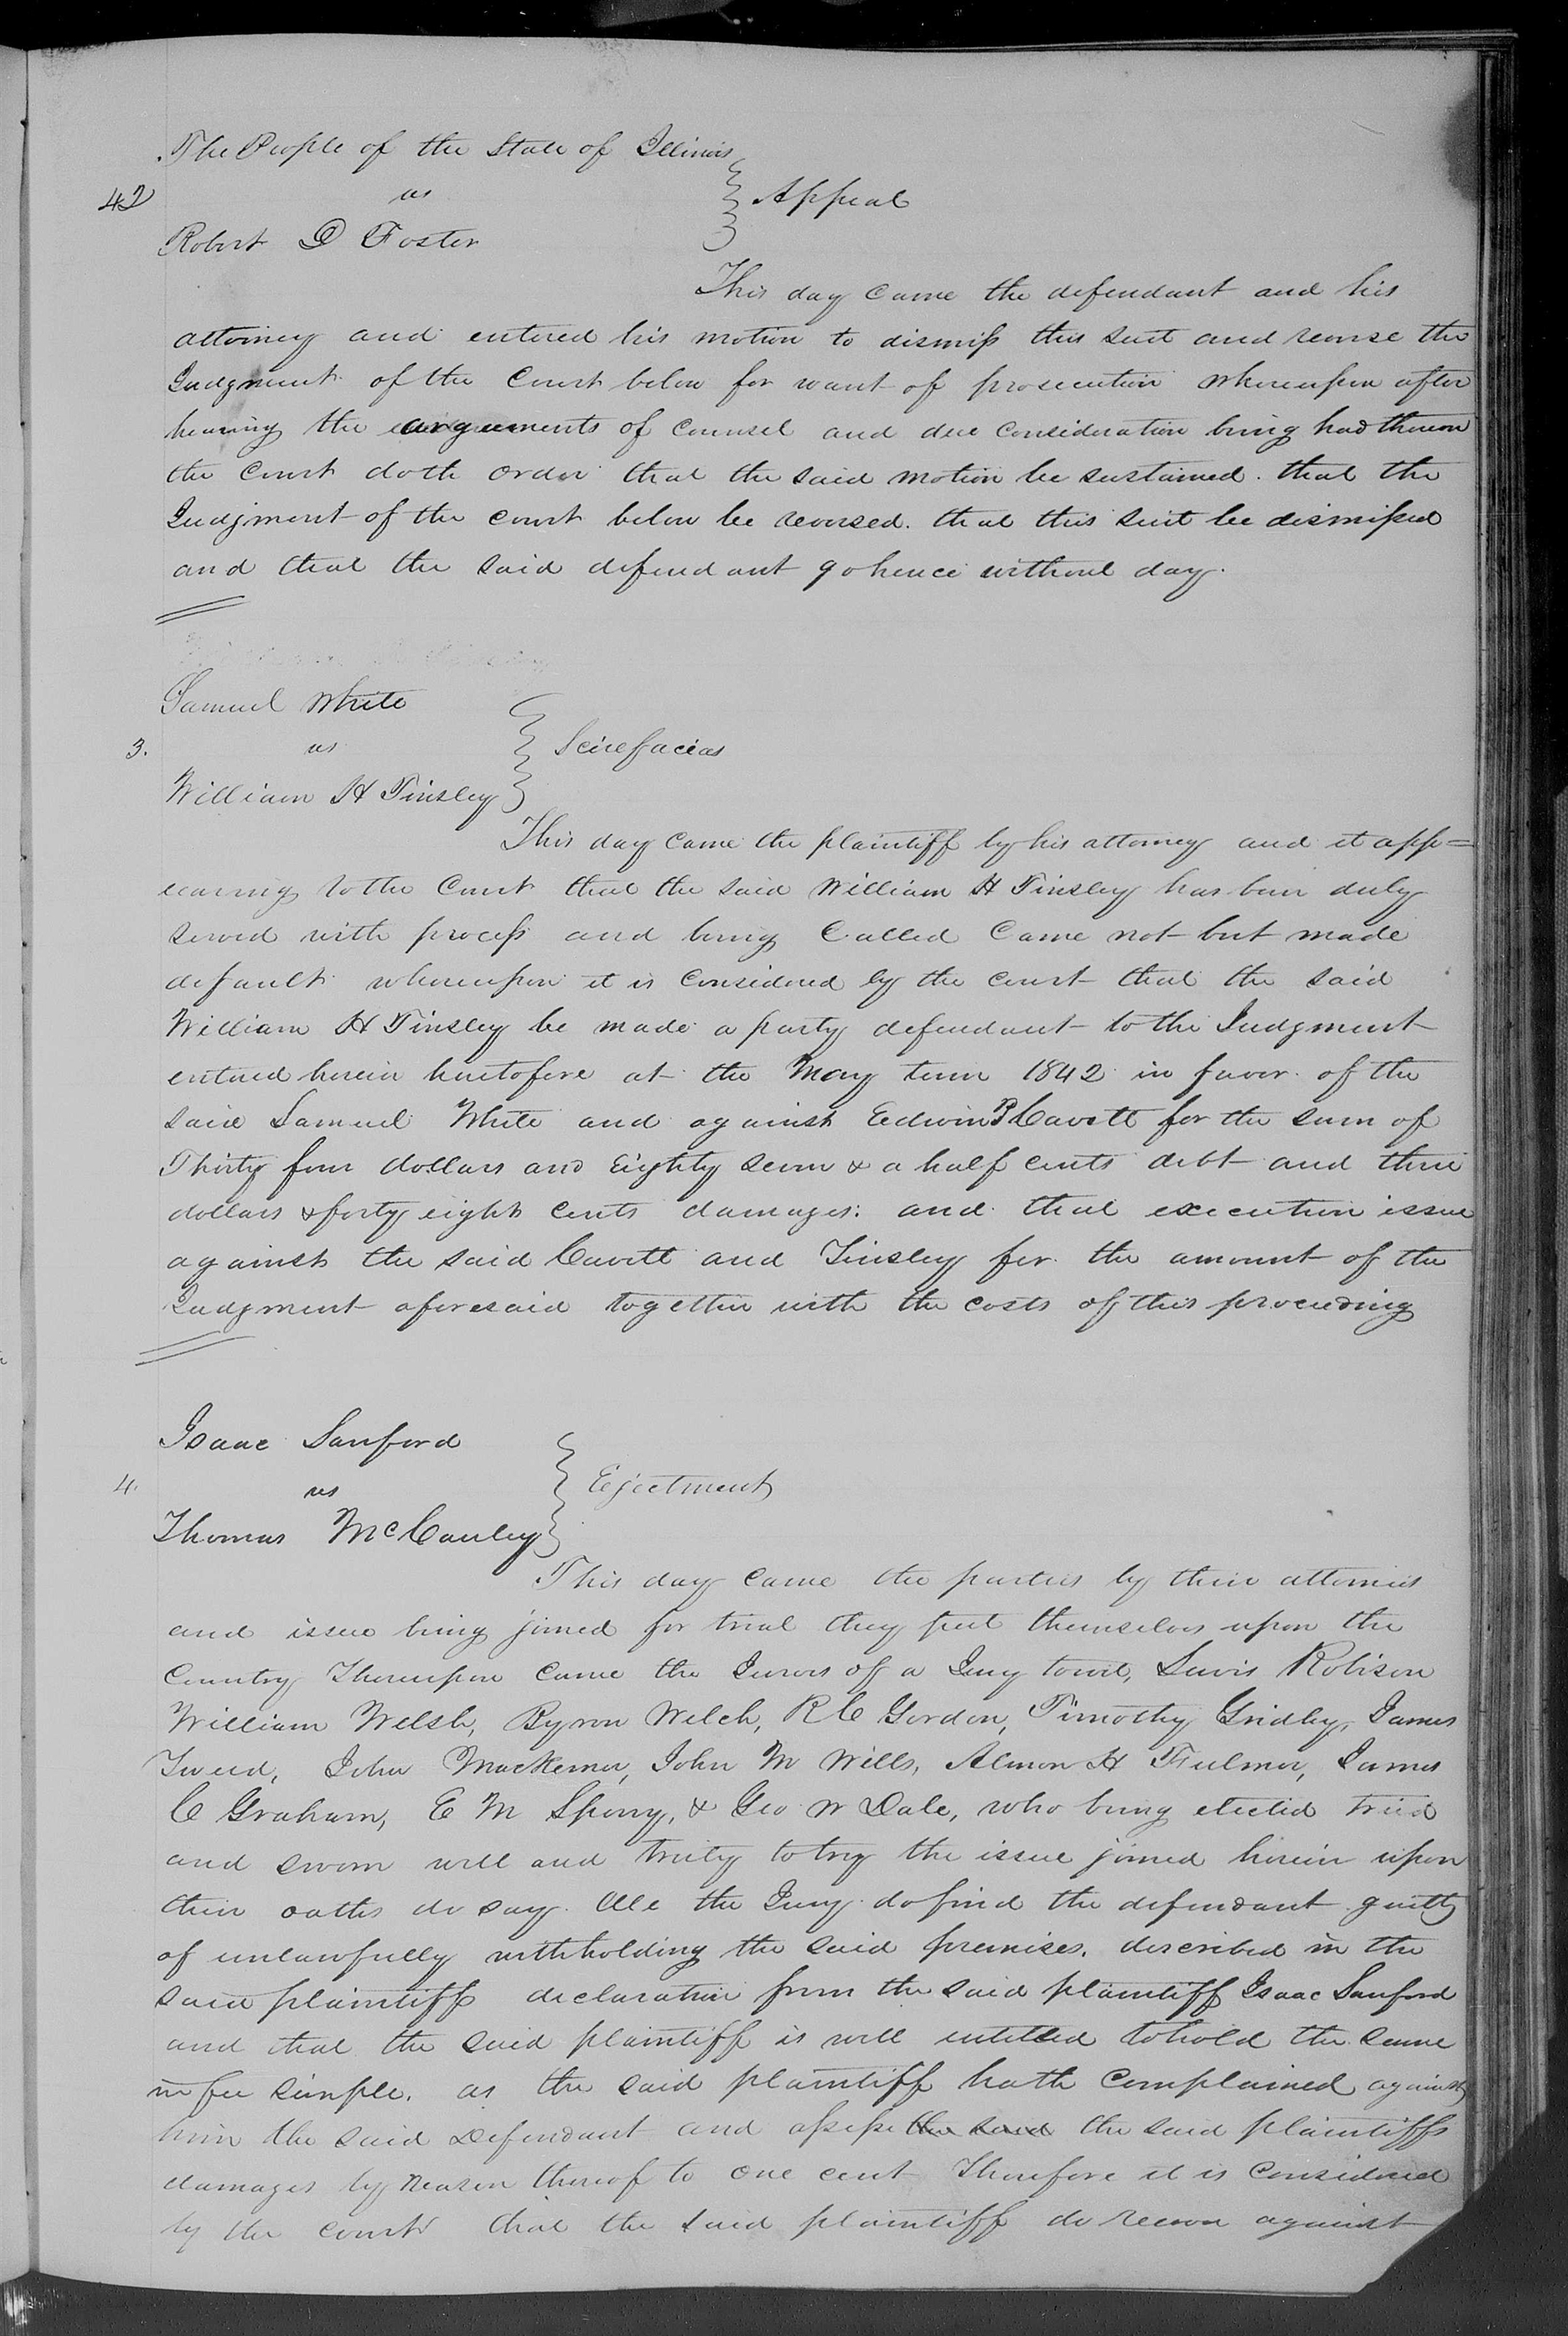 The People of the State of Illinois
42 vs } Appeal
Robert D Foster
This day came the defendant and his
attorney and entered his motion to dismiss this suit and reverse the
Judgment of the Court below for want of prosecution whereupon after
hearing the arguments of counsel and due consideration being had thereon
the Court doth order that the said motion be sustained. that the
Judgment of the court below be reversed. that this suit be dismissed
and that the said defendant go hence without day.
Samuel White
3. vs } Scirefacias
William H Tinsley
This day came the plaintiff by his attorney and it app=
earing to the Court that the said William H Tinsley has been duly
served with process and being Called Came not but made
default whereupon it is considered by the court that the said
William H Tinsley be made a party defendant to the Judgment
entered herein heretofore at the May term 1842 in favor of the
said Samuel White and against Edwin P Cavitt for the sum of
Thirty four dollars and Eighty seven & a half cents debt and three
dollars & forty eight cents damages. and that execution issue
against the said Cavitt and Tinsley for the amount of the
Judgment aforesaid together with the costs of this proceeding
Isaac Sanford
4. vs } Ejectment
Thomas McCauley
This day came the parties by their attornies
and issue being joined for trial they put themselves upon the
Country Thereupon came the Jurors of a Jury towit, Lewis Robison
William Welsh, Byron Welch, R C Gordon, Timothy Gridley, James
Tweed, John Mackemer, John M Wills, Almon H Fulmer, James
C Graham, E M Sperry, & Geo W Dale, who being elected tried
and sworn well and truly to try the issue joined herein upon
their oaths do say. We the Jury do find the defendant guilty
of unlawfully withholding the said premises. described in the
said plaintiffs declaration from the said plaintiff Isaac Sanford
and that the said plaintiff is well entitled to hold the same
in fee simple. as the said plaintiff hath Complained against
him the said Defendant and assess the said the said plaintiffs
damages by reason thereof to one cent Therefore it is Considered
by the court that the said plaintiff do recover against